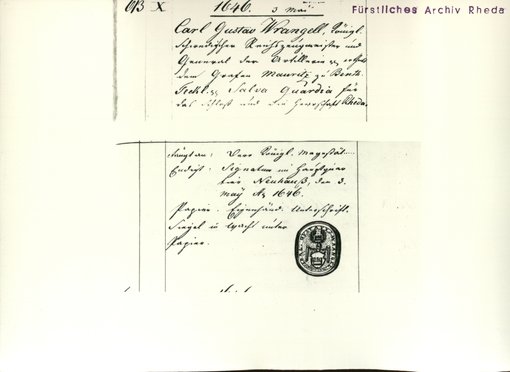 Fürstliches Archiv Rheda
X 1646. 3 Mai
Carl Gustav Wrangell, Königl.
Schwedischer Reichszeugmeister und
General der Artillerie ertheilt
dem Grafen Mauritz zu Benth.
Teckl. Salva Guardia für
das Schloß und die Herrschaft Rheda.
Fängt an: Königl. Magestät
Endigt: Signatum im Hauptquar
tier Neuhauß, den 3.
May Ao 1646.
Papier. Eigenhänd. Unterschrift.
Siegel in Wachs unter
Papier.